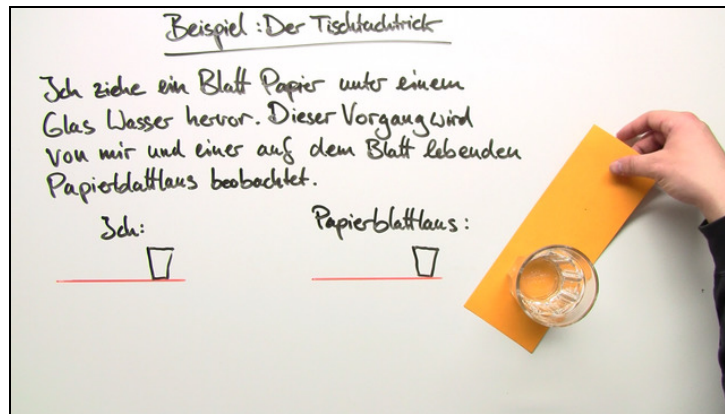 Beispiel: Der Tischtuchtrick
Ich ziehe ein Blatt Papier unter einem
Glas Wasser hervor. Dieser Vorgang wird
von mir und einer auf dem Blatt lebenden
Papierblattlaus beobachtet.
Ich: Papierblattlaus: